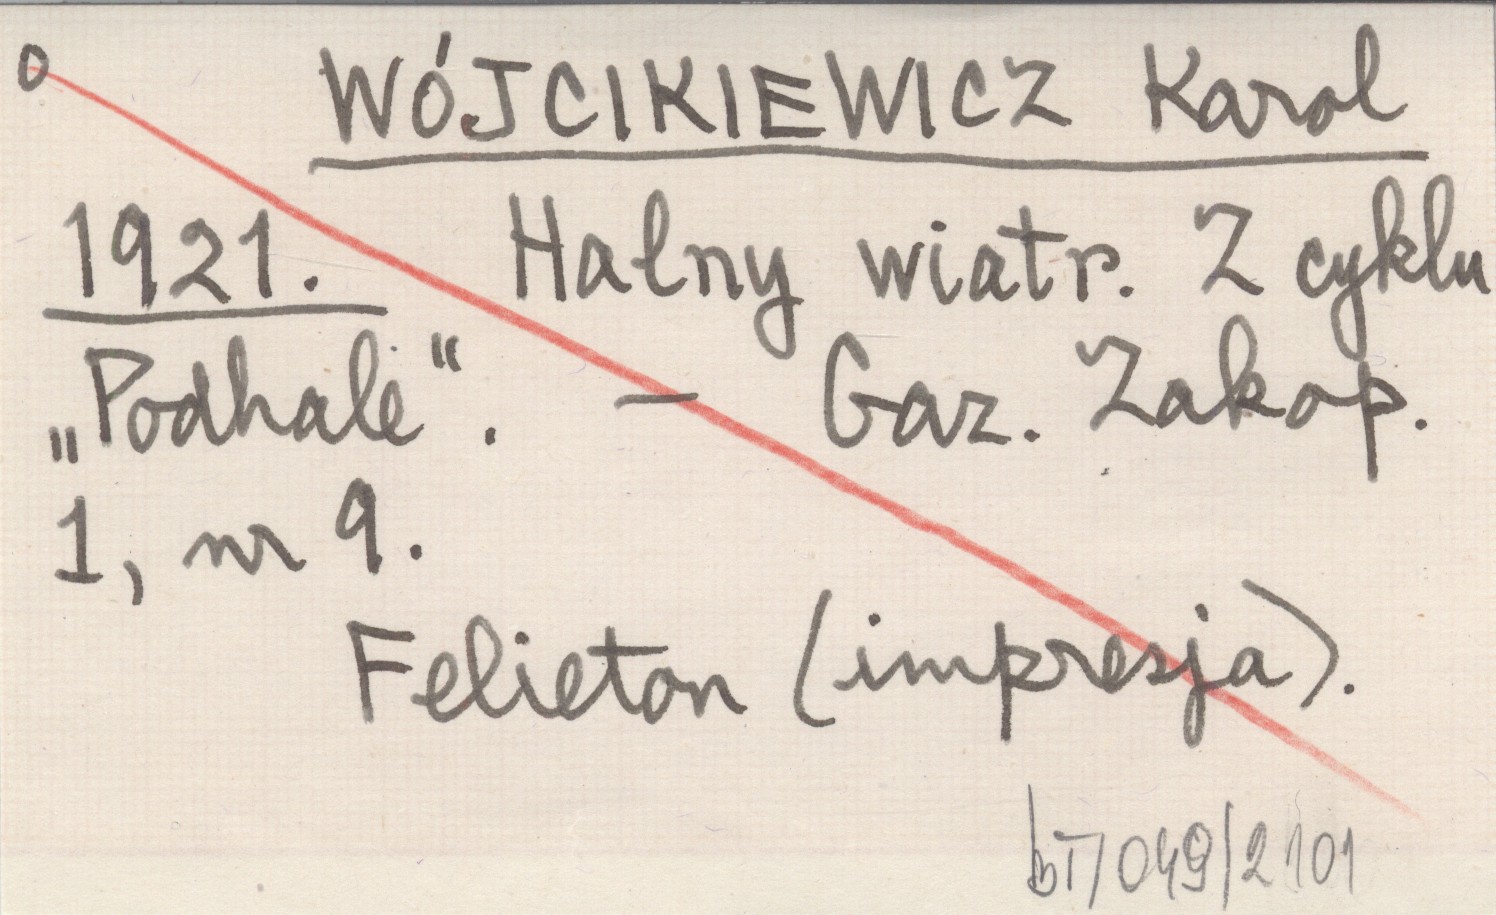 0
WÓJCIKIEWICZ Karol
1921. Halny wiatr. Z cyklu
„Podhale". — Gaz. Zakop.
1, nr 9.
Felieton (impresja).
bT/049/2101